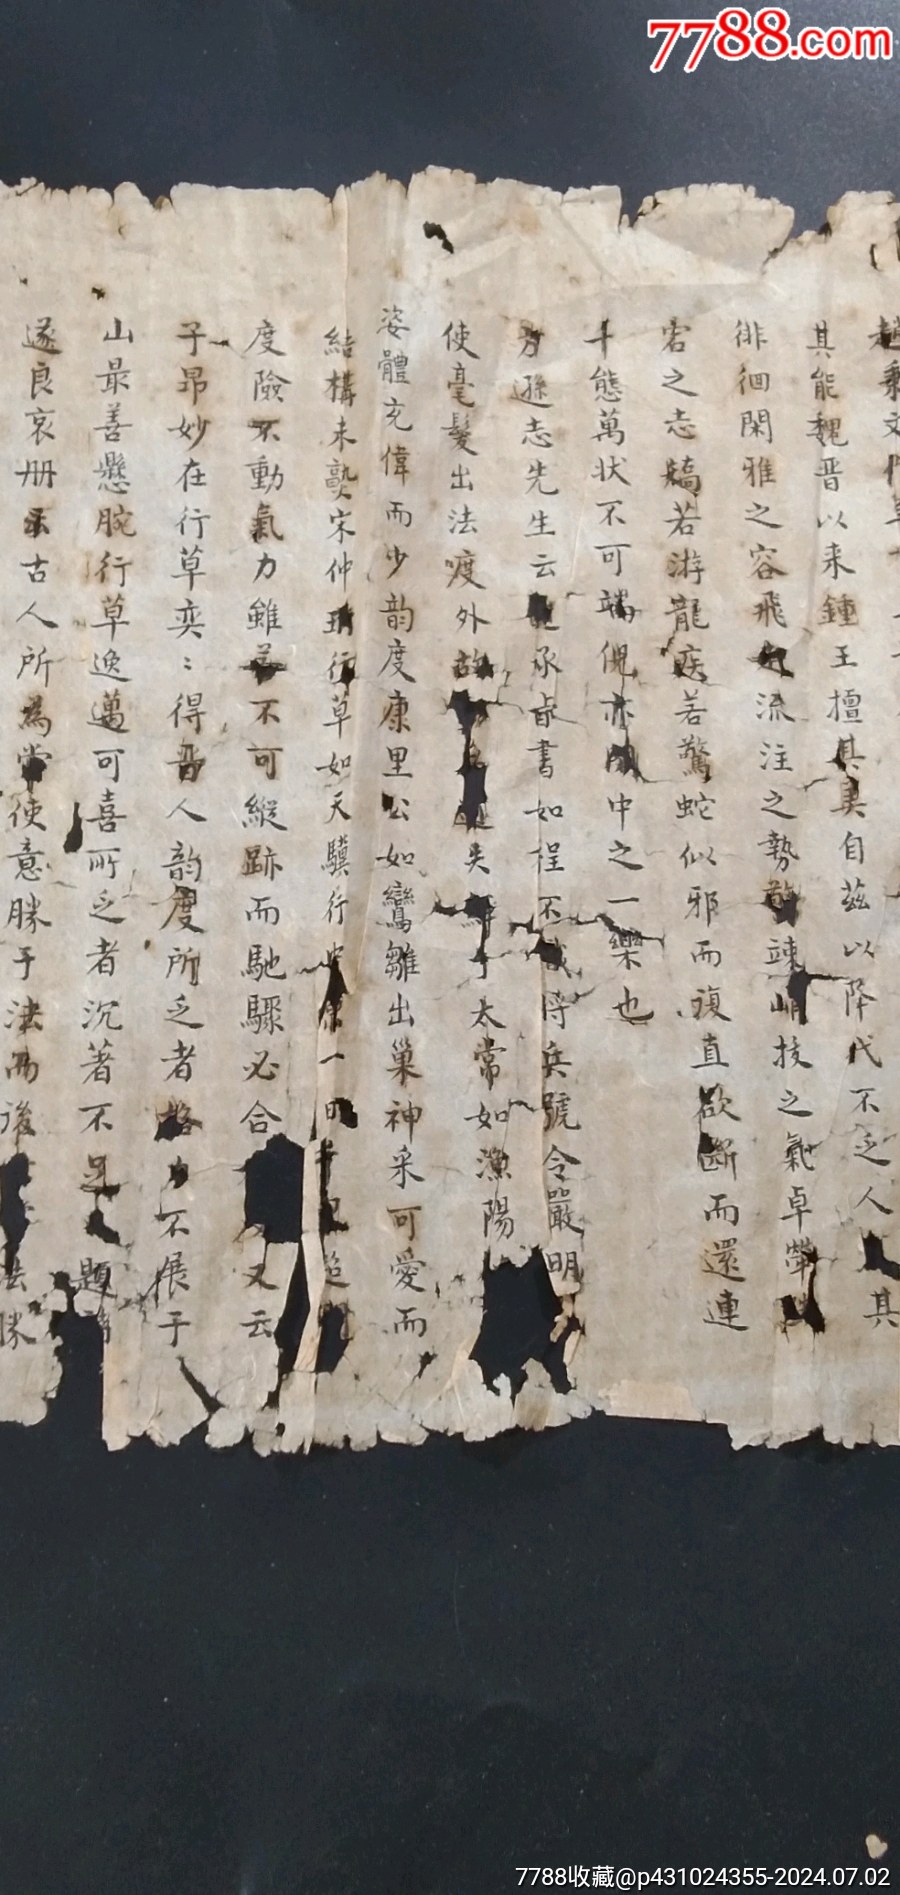 7788.com
趙秉文
其
其能魏晋以来鍾王擅其美自茲以降代不乏人
徘徊閑雅之容飛流注之勢竦峭拔之氣卓犖
宕之志矯若游龍疾若驚蛇似邪而復直欲断而還連
千態萬状不可端倪亦中之一樂也
方遜志先生云承旨書如程不識将兵號令嚴明
使毫髮出法度外故太常如漁陽
姿體充偉而少韵度康里公如鸞雛出巢神采可愛而
結構未熟宋仲珩行草如天驥行中原一日
度險不動氣力雖若不可縱跡而馳驟必合又云
子昂妙在行草奕〻得晋人韵度所乏者格力不展于
山最善懸腕行草逸邁可喜所乏者沉著不足題
遂良哀册云古人所為當使意勝于法而後法勝
7788收藏@p431024355-2024.07.02